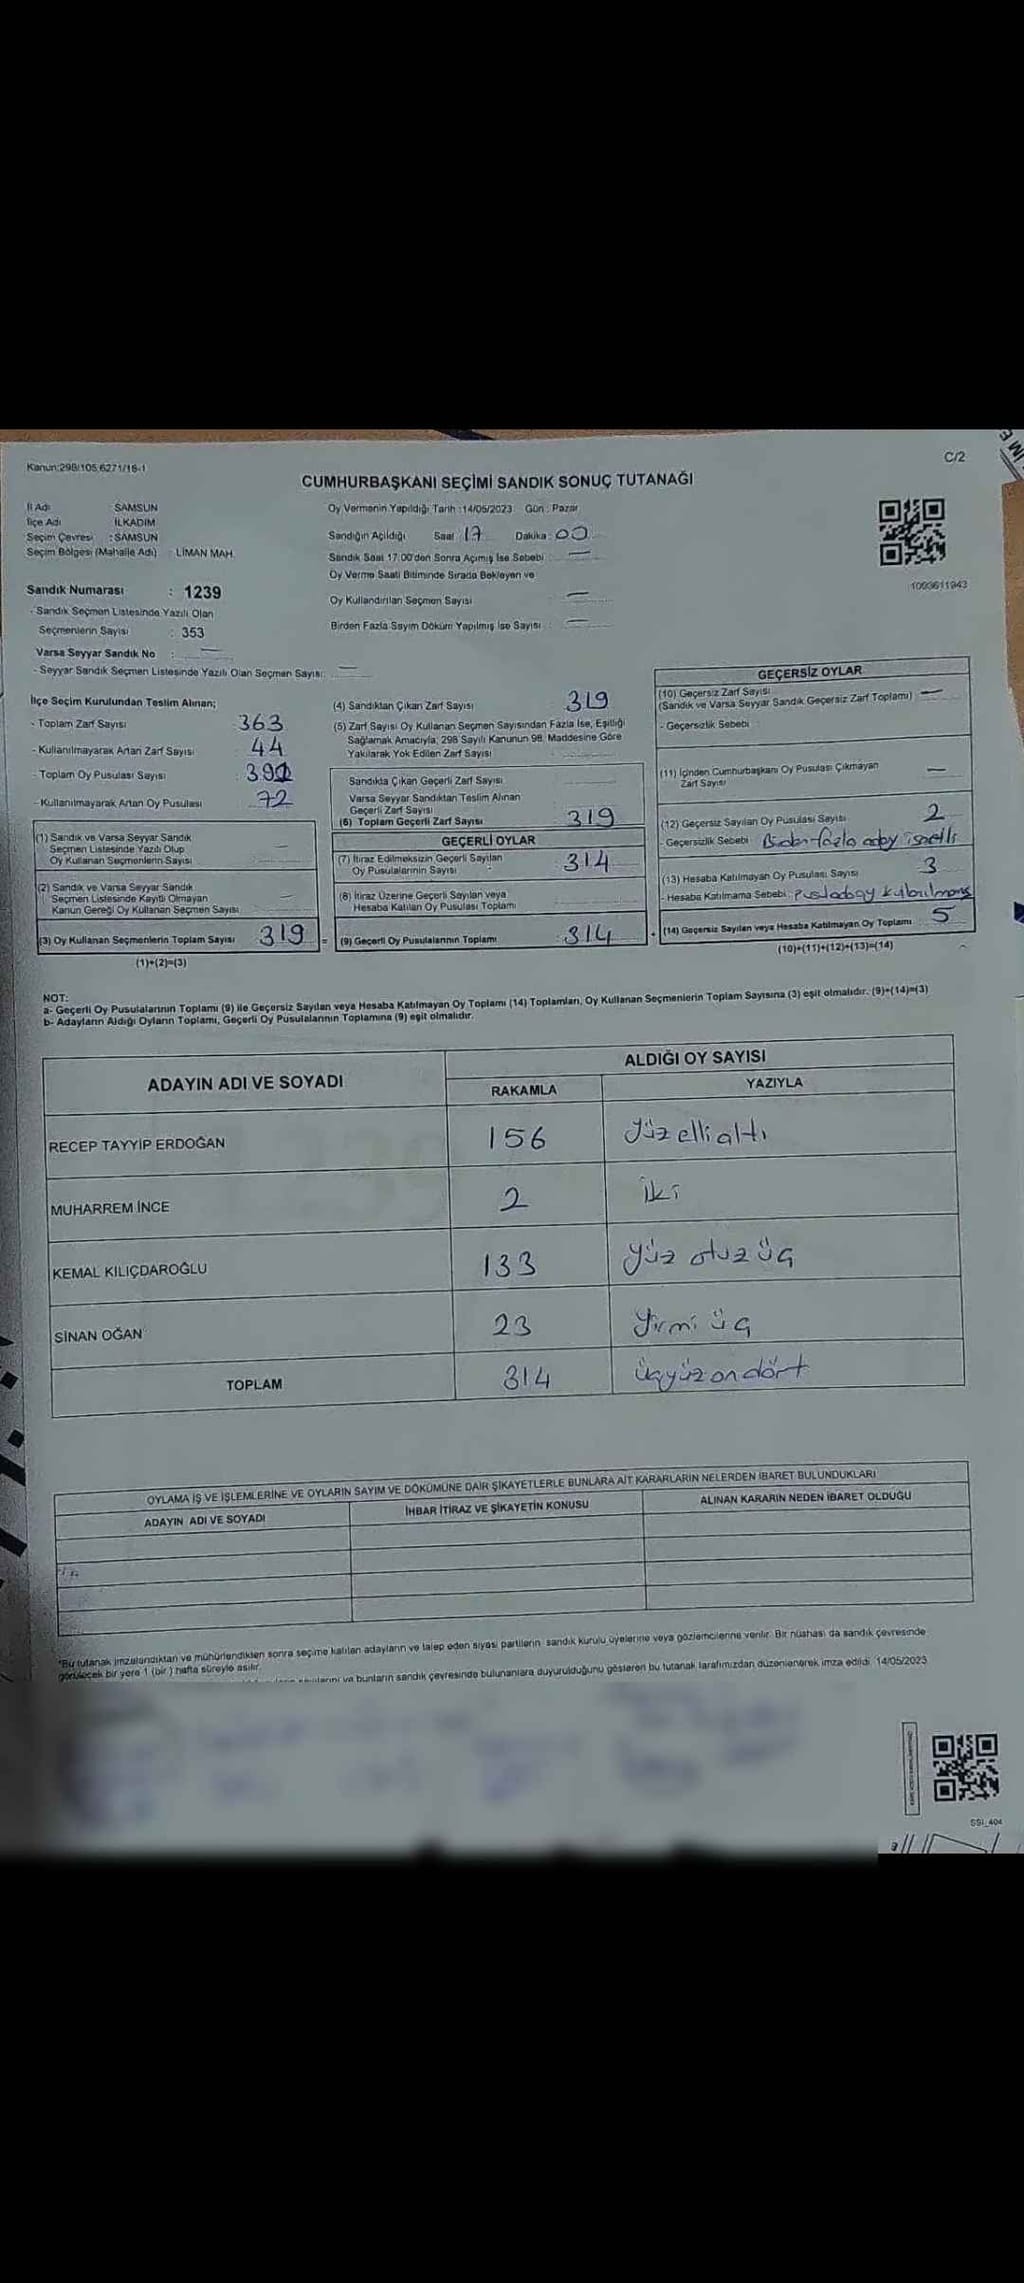 C/2
Kanun:298/105,6271/16-1
CUMHURBAŞKANI SEÇİMİ SANDIK SONUÇ TUTANAĞI
İl Adı SAMSUN
İlçe Adı İLKADIM
Seçim Çevresi : SAMSUN
Seçim Bölgesi (Mahalle Adı) : LİMAN MAH.
Oy Vermenin Yapıldığı Tarih :14/05/2023 Gün : Pazar
Sandığın Açıldığı Saat 17 Dakika : 00
Sandık Saat 17:00'den Sonra Açılmış İse Sebebi : —
Oy Verme Saati Bitiminde Sırada Bekleyen ve
Oy Kullandırılan Seçmen Sayısı —
Birden Fazla Sayım Döküm Yapılmış İse Sayısı : —
1093611943
Sandık Numarası : 1239
- Sandık Seçmen Listesinde Yazılı Olan
Seçmenlerin Sayısı : 353
Varsa Seyyar Sandık No : —
- Seyyar Sandık Seçmen Listesinde Yazılı Olan Seçmen Sayısı: —
İlçe Seçim Kurulundan Teslim Alınan;
- Toplam Zarf Sayısı 363
- Kullanılmayarak Artan Zarf Sayısı 44
- Toplam Oy Pusulası Sayısı :
- Kullanılmayarak Artan Oy Pusulası 72
(1) Sandık ve Varsa Seyyar Sandık
Seçmen Listesinde Yazılı Olup
Oy Kullanan Seçmenlerin Sayısı —
(2) Sandık ve Varsa Seyyar Sandık
Seçmen Listesinde Kayıtlı Olmayan
Kanun Gereği Oy Kullanan Seçmen Sayısı —
(3) Oy Kullanan Seçmenlerin Toplam Sayısı 319 =
(1)+(2)=(3)
(4) Sandıktan Çıkan Zarf Sayısı 319
(5) Zarf Sayısı Oy Kullanan Seçmen Sayısından Fazla İse, Eşitliği
Sağlamak Amacıyla; 298 Sayılı Kanunun 98. Maddesine Göre
Yakılarak Yok Edilen Zarf Sayısı
Sandıkta Çıkan Geçerli Zarf Sayısı
Varsa Seyyar Sandıktan Teslim Alınan
Geçerli Zarf Sayısı
(6) Toplam Geçerli Zarf Sayısı 319
GEÇERLİ OYLAR
(7) İtiraz Edilmeksizin Geçerli Sayılan
Oy Pusulalarının Sayısı : 314
(8) İtiraz Üzerine Geçerli Sayılan veya
Hesaba Katılan Oy Pusulası Toplamı
(9) Geçerli Oy Pusulalarının Toplamı : 314 +
GEÇERSİZ OYLAR
(10) Geçersiz Zarf Sayısı
(Sandık ve Varsa Seyyar Sandık Geçersiz Zarf Toplamı) —
- Geçersizlik Sebebi :
(11) İçinden Cumhurbaşkanı Oy Pusulası Çıkmayan
Zarf Sayısı —
(12) Geçersiz Sayılan Oy Pusulası Sayısı 2
- Geçersizlik Sebebi : Birden fazla aday işaretli
(13) Hesaba Katılmayan Oy Pusulası Sayısı 3
- Hesaba Katılmama Sebebi :
(14) Geçersiz Sayılan veya Hesaba Katılmayan Oy Toplamı 5
(10)+(11)+(12)+(13)=(14)
NOT:
a- Geçerli Oy Pusulalarının Toplamı (9) ile Geçersiz Sayılan veya Hesaba Katılmayan Oy Toplamı (14) Toplamları, Oy Kullanan Seçmenlerin Toplam Sayısına (3) eşit olmalıdır. (9)+(14)=(3)
b- Adayların Aldığı Oyların Toplamı, Geçerli Oy Pusulalarının Toplamına (9) eşit olmalıdır.
ADAYIN ADI VE SOYADI ALDIĞI OY SAYISI
RAKAMLA YAZIYLA
RECEP TAYYİP ERDOĞAN 156 Yüz elli altı
MUHARREM İNCE 2 iki
KEMAL KILIÇDAROĞLU 133 Yüz otuz üç
SİNAN OĞAN 23 Yirmi üç
TOPLAM 314 üçyüz on dört
OYLAMA İŞ VE İŞLEMLERİNE VE OYLARIN SAYIM VE DÖKÜMÜNE DAİR ŞİKAYETLERLE BUNLARA AİT KARARLARIN NELERDEN İBARET BULUNDUKLARI
ADAYIN ADI VE SOYADI İHBAR İTİRAZ VE ŞİKAYETİN KONUSU ALINAN KARARIN NEDEN İBARET OLDUĞU
*Bu tutanak imzalandıktan ve mühürlendikten sonra seçime katılan adayların ve talep eden siyasi partilerin sandık kurulu üyelerine veya gözlemcilerine verilir. Bir nüshası da sandık çevresinde
görülecek bir yere 1 (bir) hafta süreyle asılır.
ve bunların sandık çevresinde bulunanlara duyurulduğunu gösteren bu tutanak tarafımızdan düzenlenerek imza edildi. 14/05/2023
SSI_404